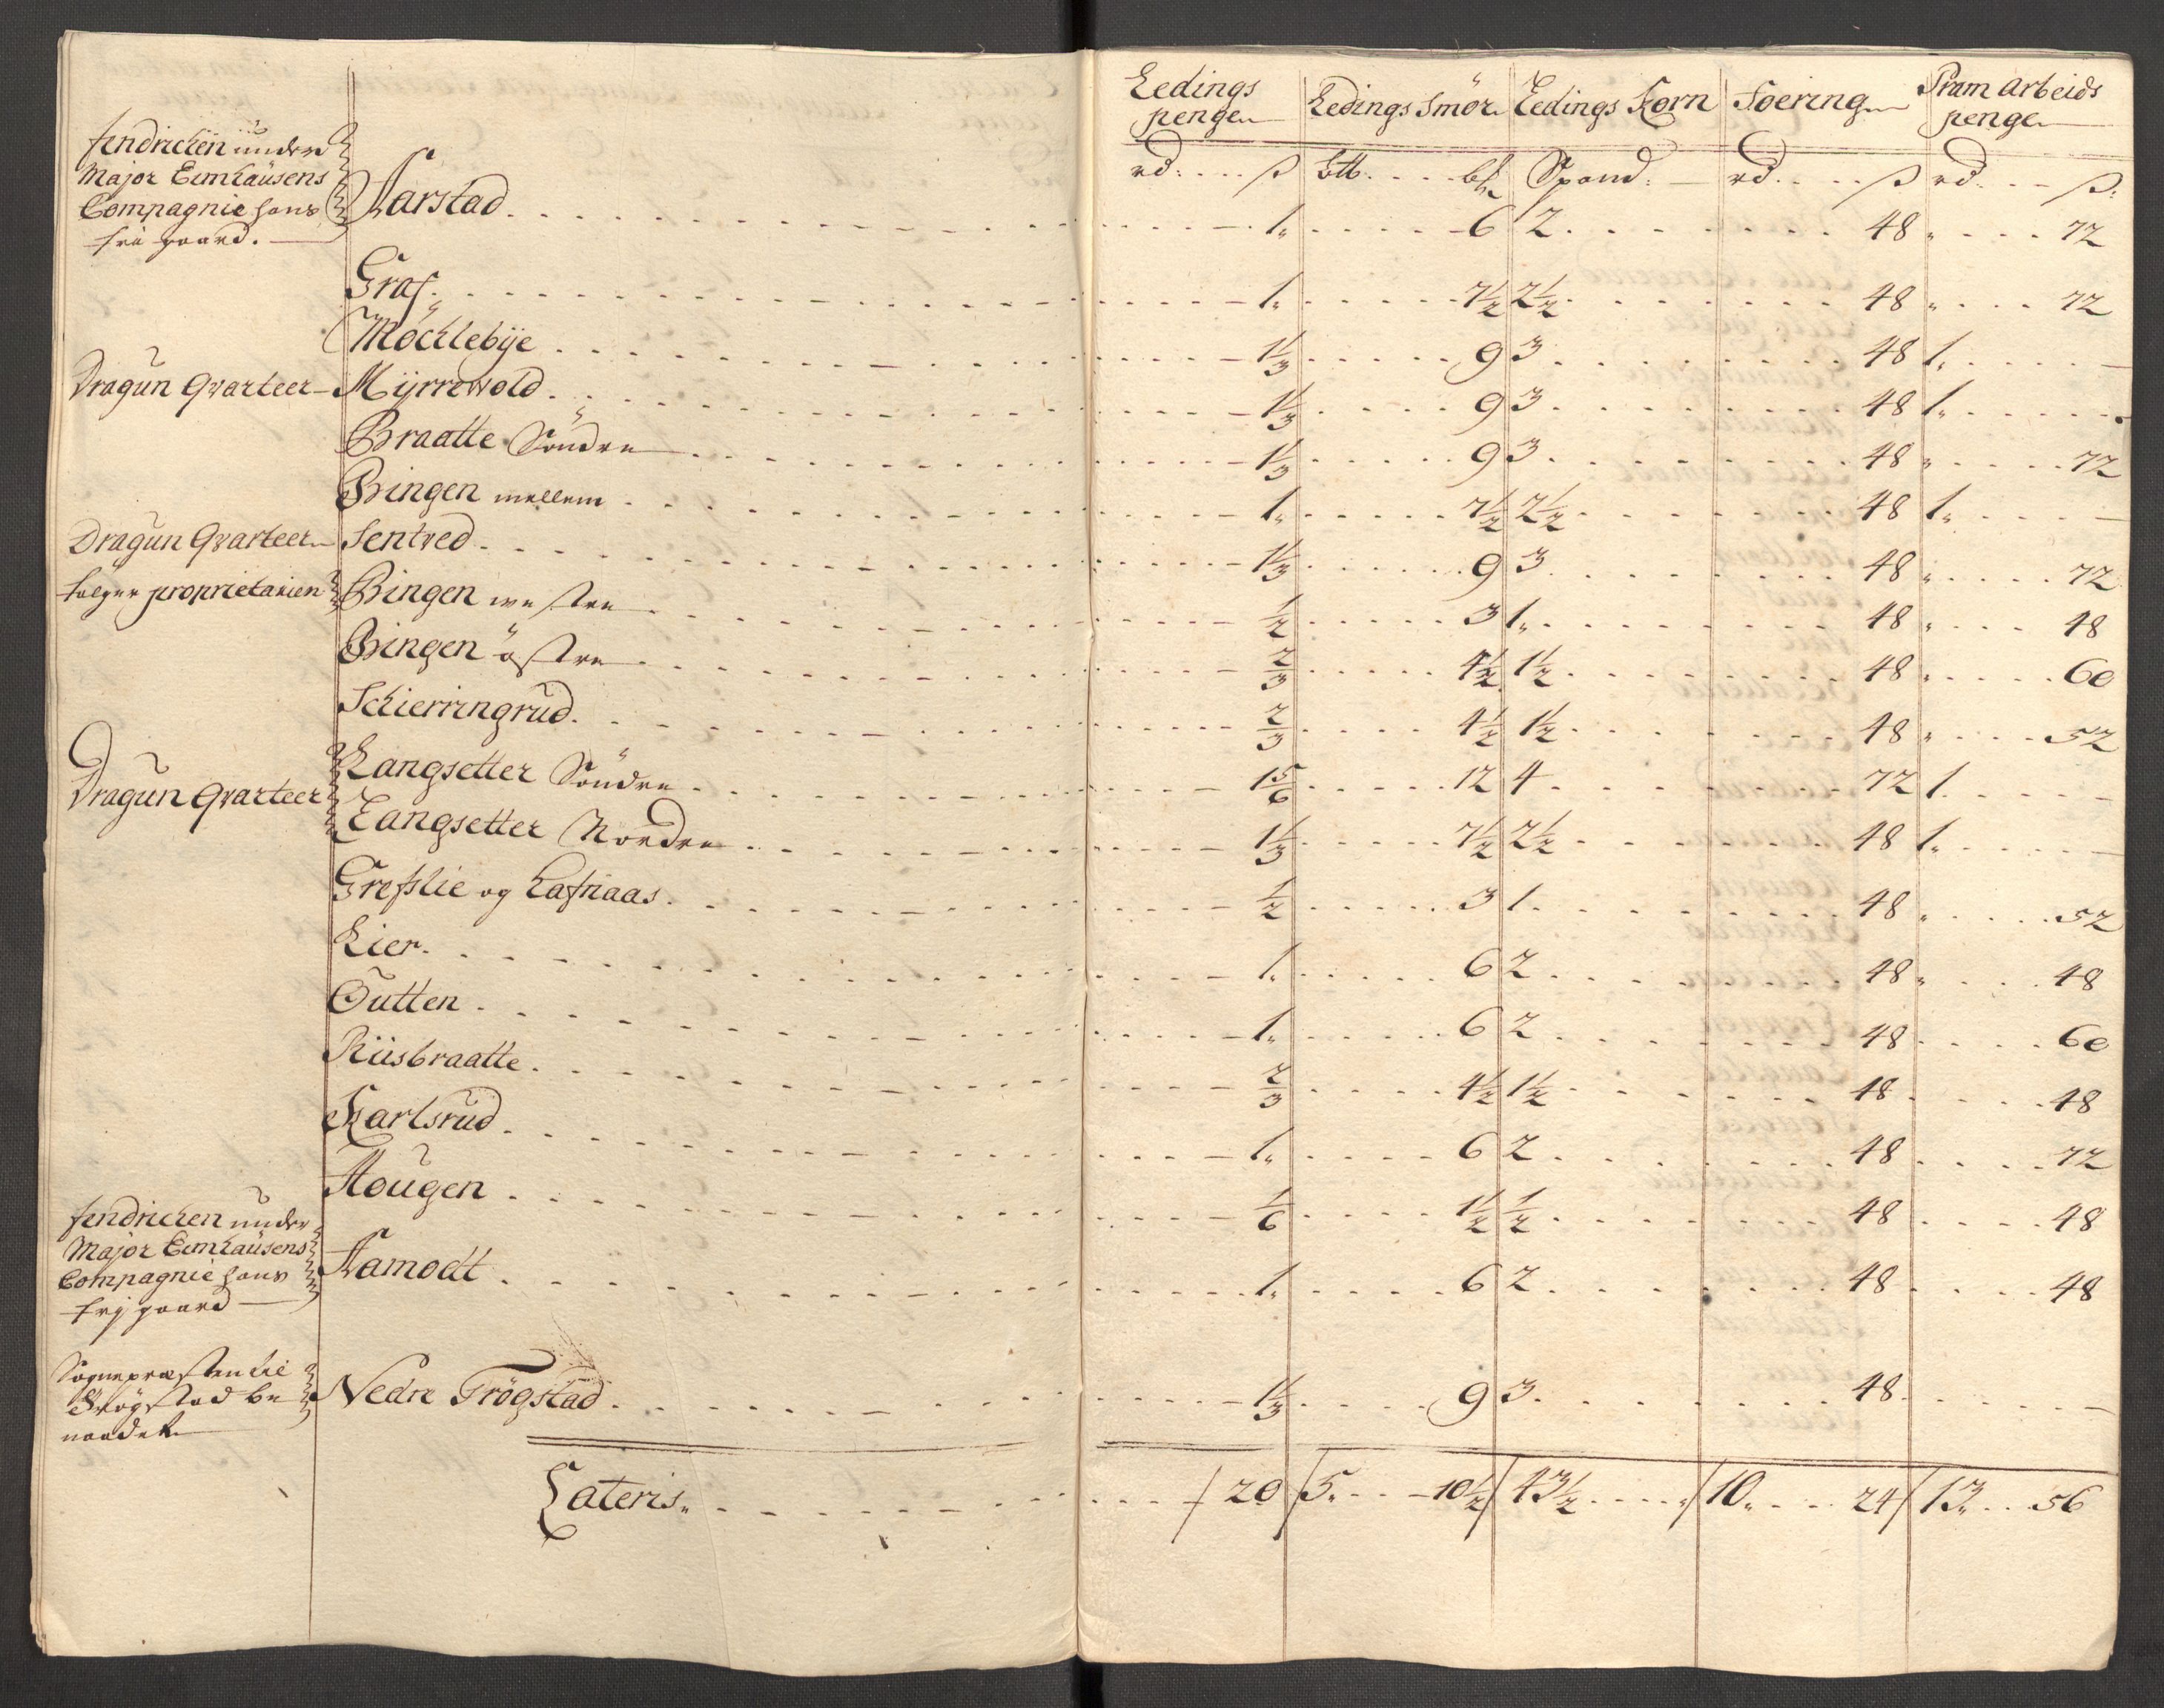 Ledings pengen | Ledings Smör | Ledings Korn | Foering | Pram arbeids penge
rd: ß | btt. bl | Spand: | rd ß | rd ß:
Fendrichen under
Major Eimhausens
Compagnie hans
frii gaard. Aarstad 1. | 6 | 2 | 48 | 72
Graf 1. | 7½ | 2½ | 48 | 72
Möchlebÿe 1⅓ | 9 | 3 | 48 | 1. –
Dragun Qvarteer – Mÿrrewold 1⅓ | 9 | 3 | 48 | 1.
Braatte Söndre 1⅓ | 9 | 3 | 48 | 72
Bingen mellem 1. | 7½ | 2½ | 48 | 1. –
Dragun Qvarteer Sentved 1⅓ | 9 | 3 | 48 | 72
følger proprietarien Bingen westre ½ | 3 | 1. | 48 | 48
Bingen östre ⅔ | 4½ | 1½ | 48 | 60
Schierringrud ⅔ | 4½ | 1½ | 48 | 52
Dragun Qvarteer Langsetter Söndre 1⅚ | 12 | 4 | 72 | 1. –
Langsetter Nordre 1⅓ | 7½ | 2½ | 48 | 1. –
Greßlie og Lafnaas ½ | 3 | 1 | 48 | 52
Lier 1. | 6 | 2 | 48 | 48
Outten 1. | 6 | 2 | 48 | 60
Riisbraatte ⅔ | 4½ | 1½ | 48 | 48
Karlsrud 1. | 6 | 2 | 48 | 72
Hougen ⅙ | 1½ | ½ | 48 | 48
Fendrichen under
Major Eimhausens
Compagnie hans
frij gaard – Aamodt 1. | 6 | 2 | 48 | 48
Sognepræsten til
Trögstad be
naadet Nedre Trögstad 1⅓ | 9 | 3 | 48 | –
Lateris 20 | 5. 10½ | 43½ | 10. 24 | 13. 56